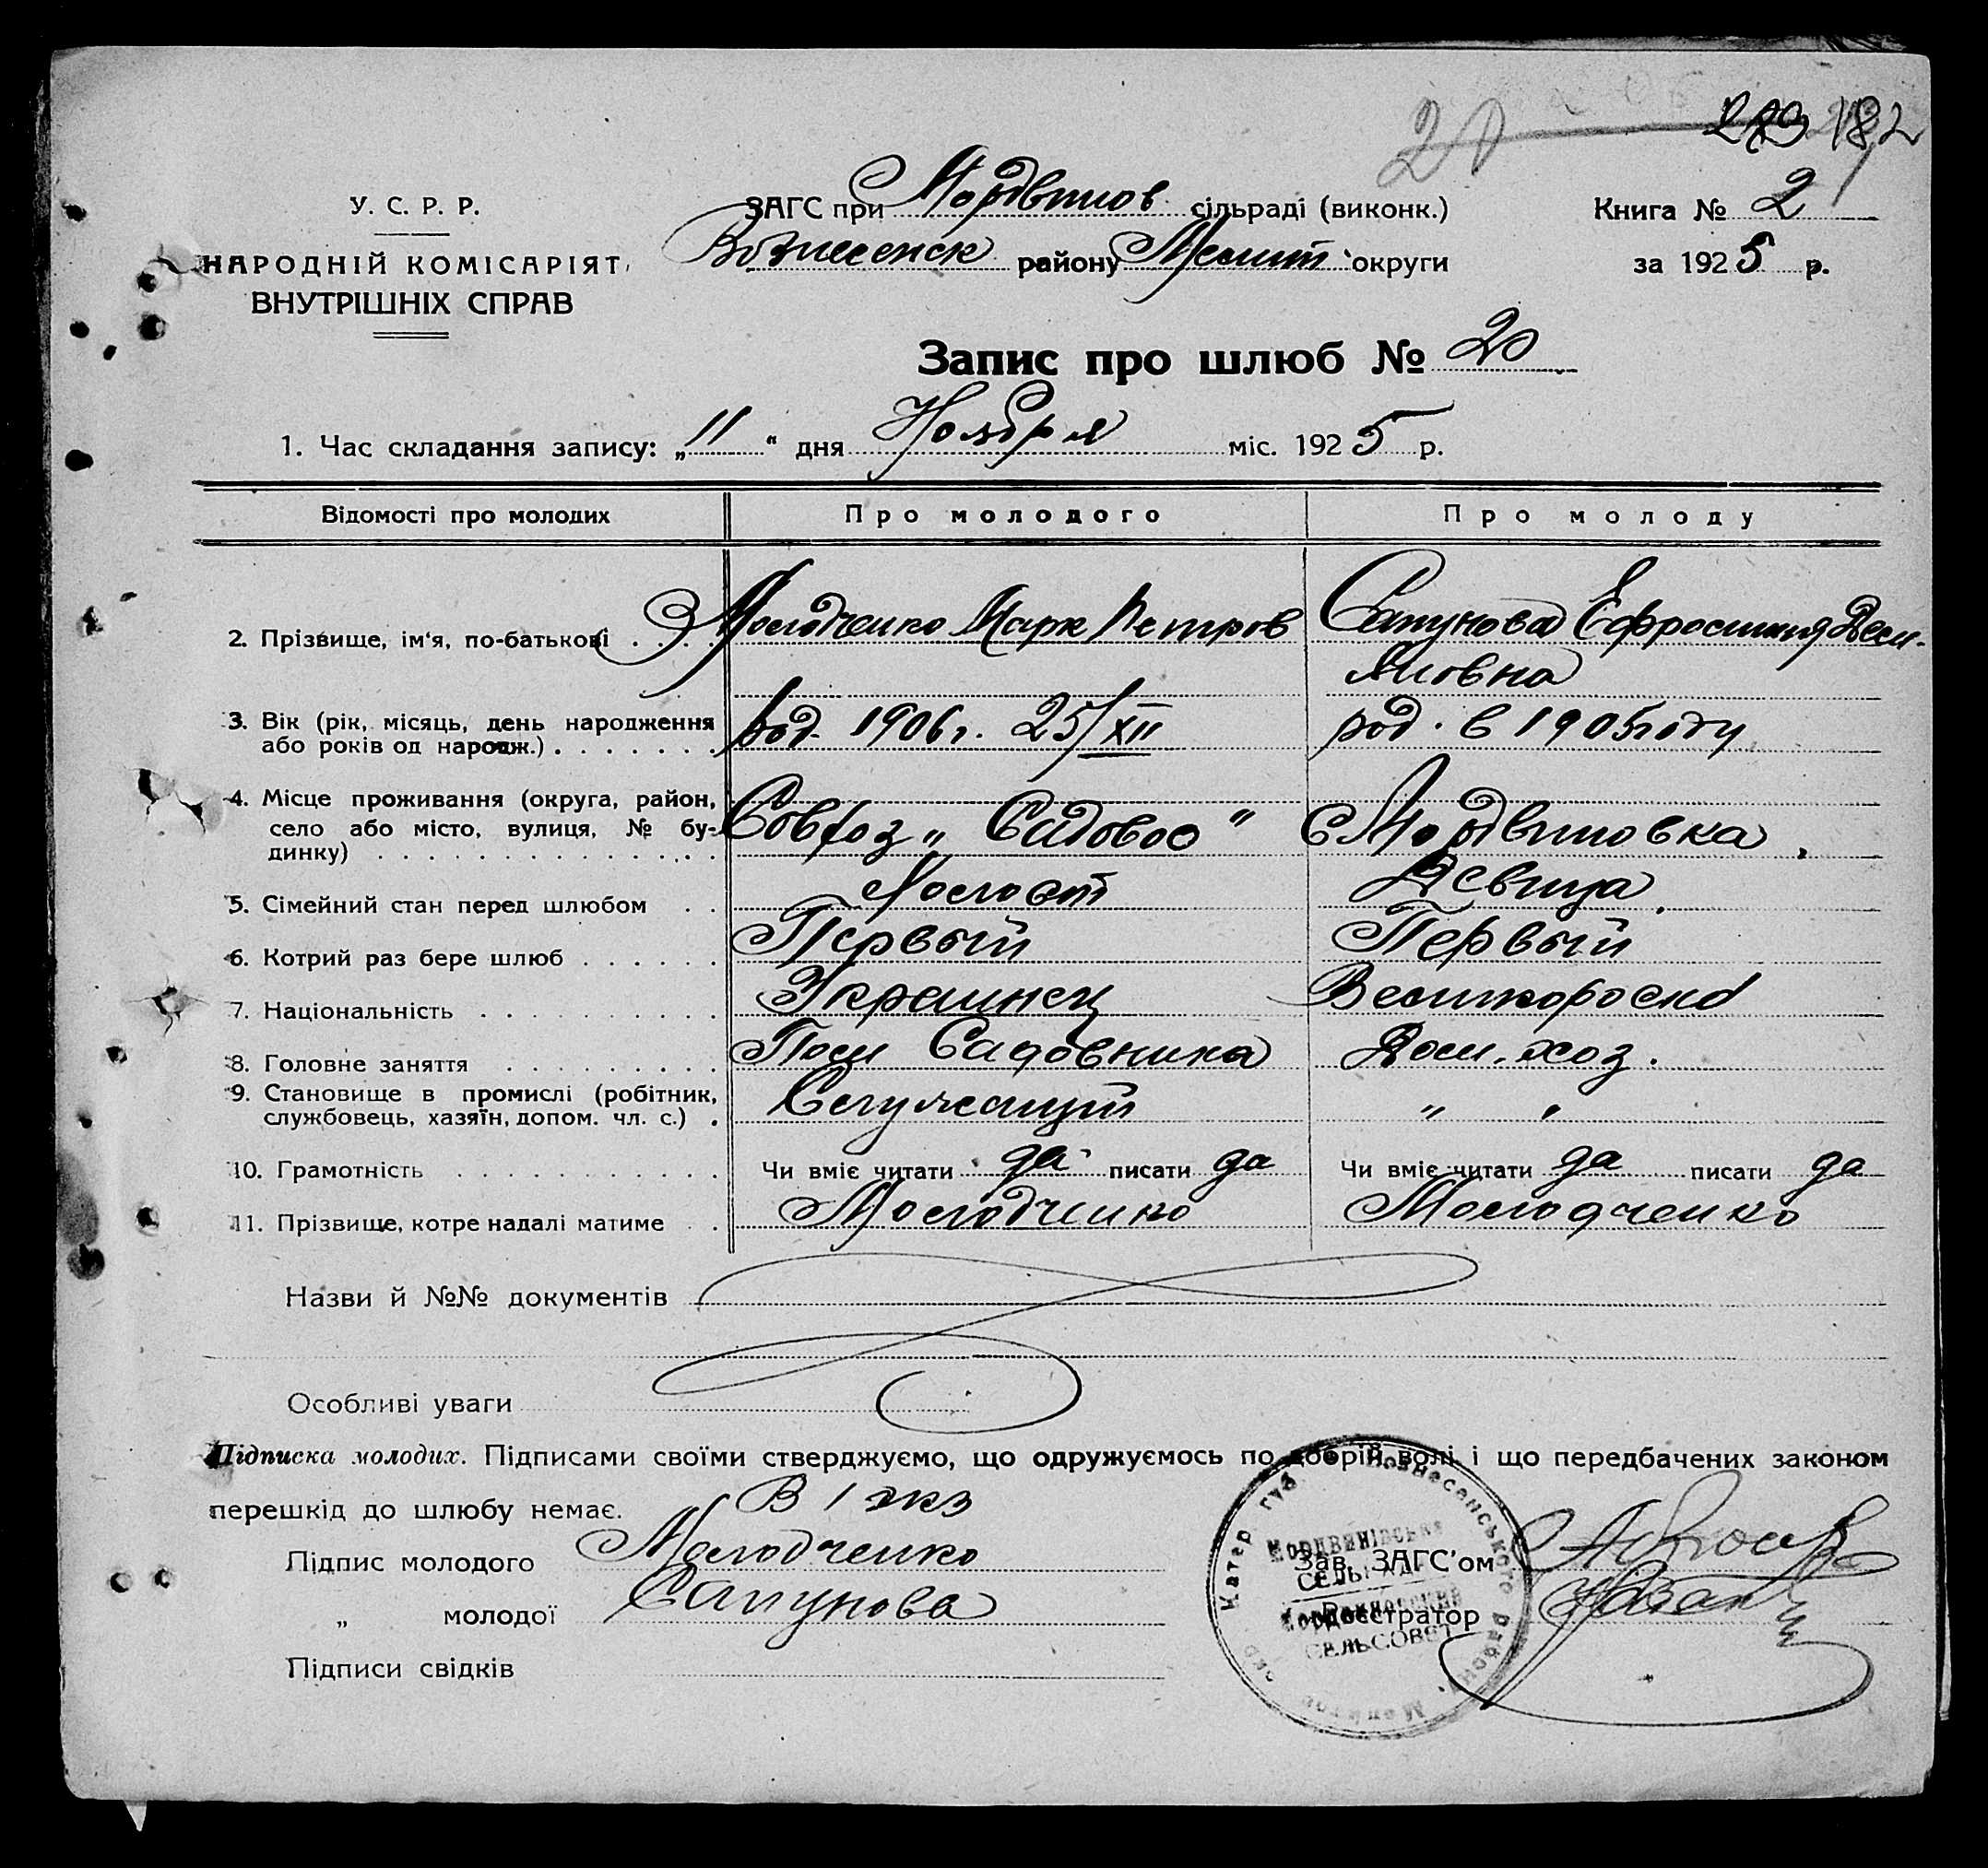 20 182
У. С. Р. Р.
НАРОДНІЙ КОМІСАРІЯТ
ВНУТРІШНІХ СПРАВ
ЗАГС при Мордвинов сільраді (виконк.)
Вознесенск району Мелит округи
Книга № 2
за 1925 р.
Запис про шлюб № 20
1. Час складання запису: „11“ дня Ноября міс. 1925 р.
Відомості про молодих Про молодого Про молоду
2. Прізвище, ім‘я, по-батькові . . . . Молодченко Марк Петров Сапунова Ефросиния Деми-
яновна
3. Вік (рік, місяць, день народження
або років од народж.) . . . . . . . род. 1906 г. 25/XII род. в 1905 году
4. Місце проживання (округа, район,
село або місто, вулиця, № бу-
динку) . . . . . . . . . . . . . . Совхоз „Садовое“ с Мордвиновка.
5. Сімейний стан перед шлюбом . . Холост Девица.
6. Котрий раз бере шлюб . . . . . . Первый Первый
7. Національність . . . . . . . . . . Украинец Великороска
8. Головне заняття . . . . . . . . . Пом Садовника Дом. хоз.
9. Становище в промислі (робітник,
службовець, хазяїн, допом. чл. с.) . Служащий „ „
10. Грамотність . . . . . . . . . . . . Чи вміє читати да писати да Чи вміє читати да писати да
11. Прізвище, котре надалі матиме . . Молодченко Молодченко
Назви й №№ документів
Особливі уваги
Підписка молодих. Підписами своїми стверджуємо, що одружуємось по добрій волі і що передбачених законом
перешкід до шлюбу немає. В 1 экз
Підпис молодого Молодченко
„ молодої Сапунова
Підписи свідків
Зав. ЗАГС’ом
Реєстратор
Катер. губ. Вознесенського район. Мелітоп. окр.
Мордвинівська
СЕЛЬРАДА
Мордвиновский
СЕЛЬСОВЕТ